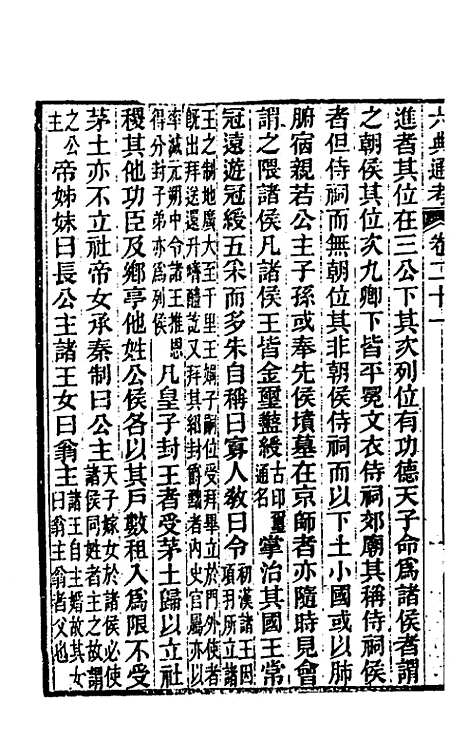 六典通考 卷二十一
進者其位在三公下其次列位有功德天子命爲諸侯者謂
之朝侯其位次九卿下皆平冕文衣侍祠郊廟其稱侍祠侯
者但侍祠而無朝位其非朝侯侍祠而以下土小國或以肺
腑宿親若公主子孫或奉先侯墳墓在京師者亦隨時見會
謂之隈諸侯凡諸侯王皆金璽盭綬古印璽通名掌治其國王常
冠遠遊冠綬五采而多朱自稱曰寡人敎曰令初漢諸王因項羽所立諸
王之制地廣大至千里王嫡子嗣位受拜畢立於門外使者
旣出拜送還升階謝訖又拜其絕封爵蠲者內史官屬亦以
率減元朔中令諸王推恩得分封子弟亦爲列侯凡皇子封王者受茅土歸以立社
稷其他功臣及鄉亭他姓公侯各以其戶數租入爲限不受
茅土亦不立社帝女承秦制曰公主天子嫁女於諸侯必使諸侯同姓者主之故謂
之公主帝姊妹曰長公主諸王女曰翁主諸王自主婚故其女曰翁主翁者父也